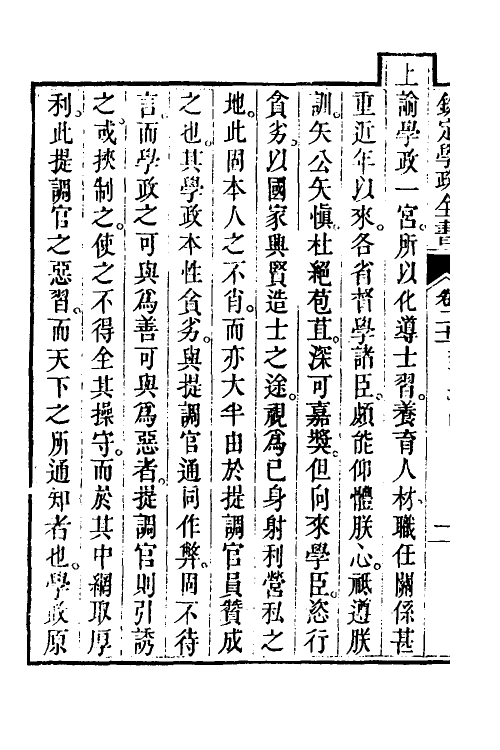 欽定學政全書 卷二十 二
上諭學政一官所以化導士習養育人材職任關係甚
重近年以來各省督學諸臣頗能仰體朕心祗遵朕
訓矢公矢愼杜絕苞苴深可嘉奬但向來學臣恣行
貪劣以國家興賢造士之途視爲已身射利營私之
地此固本人之不肖而亦大半由於提調官員贊成
之也其學政本性貪劣與提調官通同作弊固不待
言而學政之可與爲善可與爲惡者提調官則引誘
之或挾制之使之不得全其操守而於其中網取厚
利此提調官之惡習而天下之所通知者也學政原